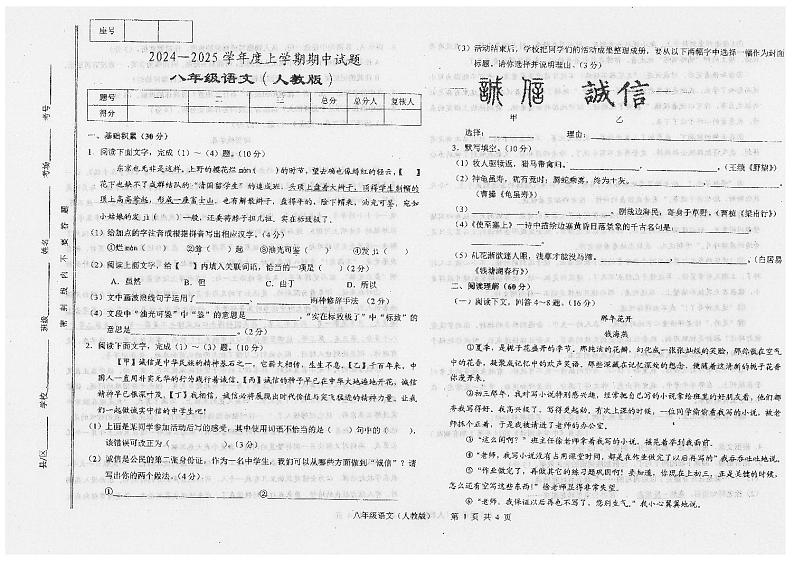 座号
2024—2025学年度上学期期中试题
八年级语文（人教版）
题号 一 二 三 总分 总分人 复核人
得分
一、基础积累（30分）
1. 阅读下面文字，完成（1）～（4）题。（10分）
东京也无非是这样。上野的樱花烂 màn（ ）的时节，望去确也像绯红的轻云，【 】
花下也缺不了成群结队的“清国留学生”的速成班，头顶上盘着大辫子，顶得学生制帽的
顶上高高耸起，形成一座富士山。也有解散辫子，盘得平的，除下帽来，油光可鉴，宛如
小姑娘的发 jì（ ）一般，还要将脖子扭几扭。实在标致极了。
（1）给加点的字注音或根据拼音写出相应汉字。（4分）
①烂 màn（ ） ②耸（ ）起 ③油光可鉴（ ） ④发 jì（ ）
（2）阅读上面文字，给【 】内填入关联词语，恰当的一项是（ ）（2分）
A. 虽然 B. 但 C. 由于 D. 所以
（3）文中画波浪线句子运用了 、 两种修辞手法（2分）
（4）文段中“油光可鉴”中“鉴”的意思是 ，“实在标致极了”中“标致”的
意思是 。（2分）
2. 阅读下面文字，完成（1）～（3）题。（10分）
【甲】诚信是中华民族的精神基石之一，它薪火相传，生生不息。【乙】千百年来，中
国人一直用朴实光华的行为践行着诚信。【丙】诚信的种子早已在中华大地遍地开花，诚信
精神早已根深叶茂。【丁】我相信，诚信必将展现出时代价值与突飞猛进的精神力量。让我
们一起做诚实守信的中学生吧！
（1）上面是某同学参加活动后写的感受，其中使用词语不恰当的是（ ）句中的（ ），
该错误可改正为（ ）。（3分）
（2）诚信是公民的第二张身份证，作为一名中学生，我们可以从哪些方面做到“诚信”？请
写出你的两个做法。（4分）
① ②
（3）活动结束后，学校把同学们的活动成果整理成册，要从以下两幅字中选择一幅作为封面
标题，请你选择并说明理由。（3分）
誠信 誠信
甲 乙
选择： 理由：
3. 默写填空。（10分）
（1）牧人驱犊返，猎马带禽归。 ， 。（王绩《野望》）
（2）神龟虽寿，犹有竟时；腾蛇乘雾，终为土灰。 ， 。
（曹操《龟虽寿》）
（3） ， 。剧哉边海民，寄身于草野。（曹植《梁甫行》）
（4）《使至塞上》一诗中描绘边塞黄昏日落景象的千古名句是： ，
。
（5）乱花渐欲迷人眼，浅草才能没马蹄。 ， 。（白居易
《钱塘湖春行》）
二、阅读理解（60分）
（一）阅读下文，回答4～8题。（16分）
那年花开
钱海燕
①夏末，是栀子花盛开的季节。那纯洁的花瓣，幻化成一张张甜馥的笑脸，那弥散在空气
中的花香，凝聚成记忆中的欢声笑语。那些深藏在记忆深处的思念，便随着这清新的栀子花香
弥漫开来。
②初三那年，我对写小说特别感兴趣，经常把自己写的小说拿给班里的好朋友看，他们都
夸我写得好，我高兴极了，写得更起劲。有次上课的时候，一位同学偷偷看我写的小说，被老
师抓个正着，于是我被请进了老师的办公室。
③“这么闲啊？”班主任徐老师拿着我写的小说，摇晃着举到我面前。
④“老师，我写小说没有占用课堂时间，都是在作业做完了以后再写的”我吞吞吐吐地说。
⑤“作业做完了，再做其它的练习题巩固啊！要知道，你现在上初三，正是关键的时候，
怎么还有空写这些东西！”徐老师显得非常失望。
⑥“老师，我保证以后再也不写了，您别生气。”我小心翼翼地说。
县/区 学校 班级 姓名 考场 考号
密封线内不要答题
八年级语文（人教版） 第1页共4页